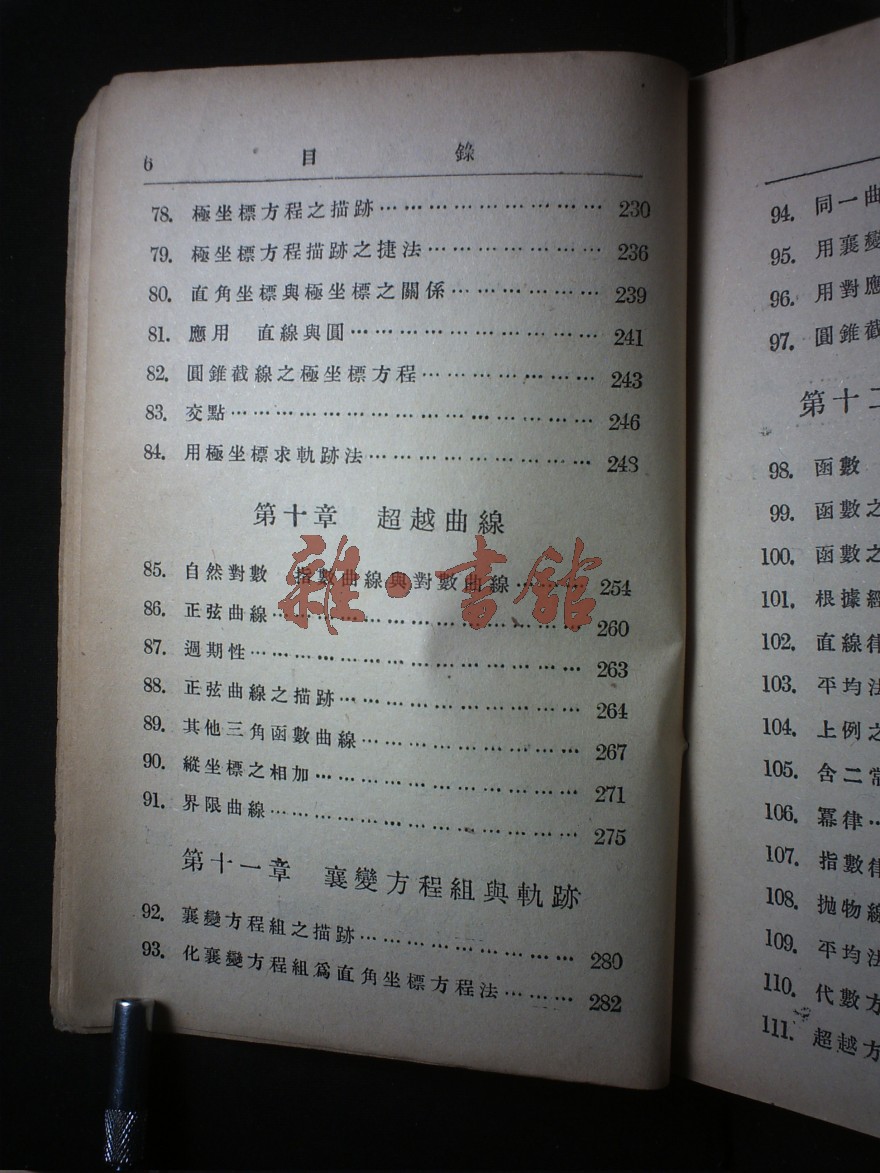 6 目 錄
78. 極坐標方程之描跡……………………… 230
79. 極坐標方程描跡之捷法…………………… 236
80. 直角坐標與極坐標之關係………………… 239
81. 應用 直線與圓……………………………… 241
82. 圓錐截線之極坐標方程…………………… 243
83. 交點………………………………………… 246
84. 用極坐標求軌跡法………………………… 248
第十章 超越曲線
85. 自然對數 指數曲線與對數曲線………… 254
86. 正弦曲線…………………………………… 260
87. 週期性……………………………………… 263
88. 正弦曲線之描跡…………………………… 264
89. 其他三角函數曲線………………………… 267
90. 縱坐標之相加……………………………… 271
91. 界限曲線…………………………………… 275
第十一章 襄變方程組與軌跡
92. 襄變方程組之描跡………………………… 280
93. 化襄變方程組爲直角坐標方程法……… 282
雜·書館
94. 同一曲
95. 用襄變
96. 用對應
97. 圓錐截
第十二
98. 函數
99. 函數之
100. 函數之
101. 根據經
102. 直線律
103. 平均法
104. 上例之
105. 含二常
106. 冪律…
107. 指數律
108. 拋物線
109. 平均法
110. 代數方
111. 超越方